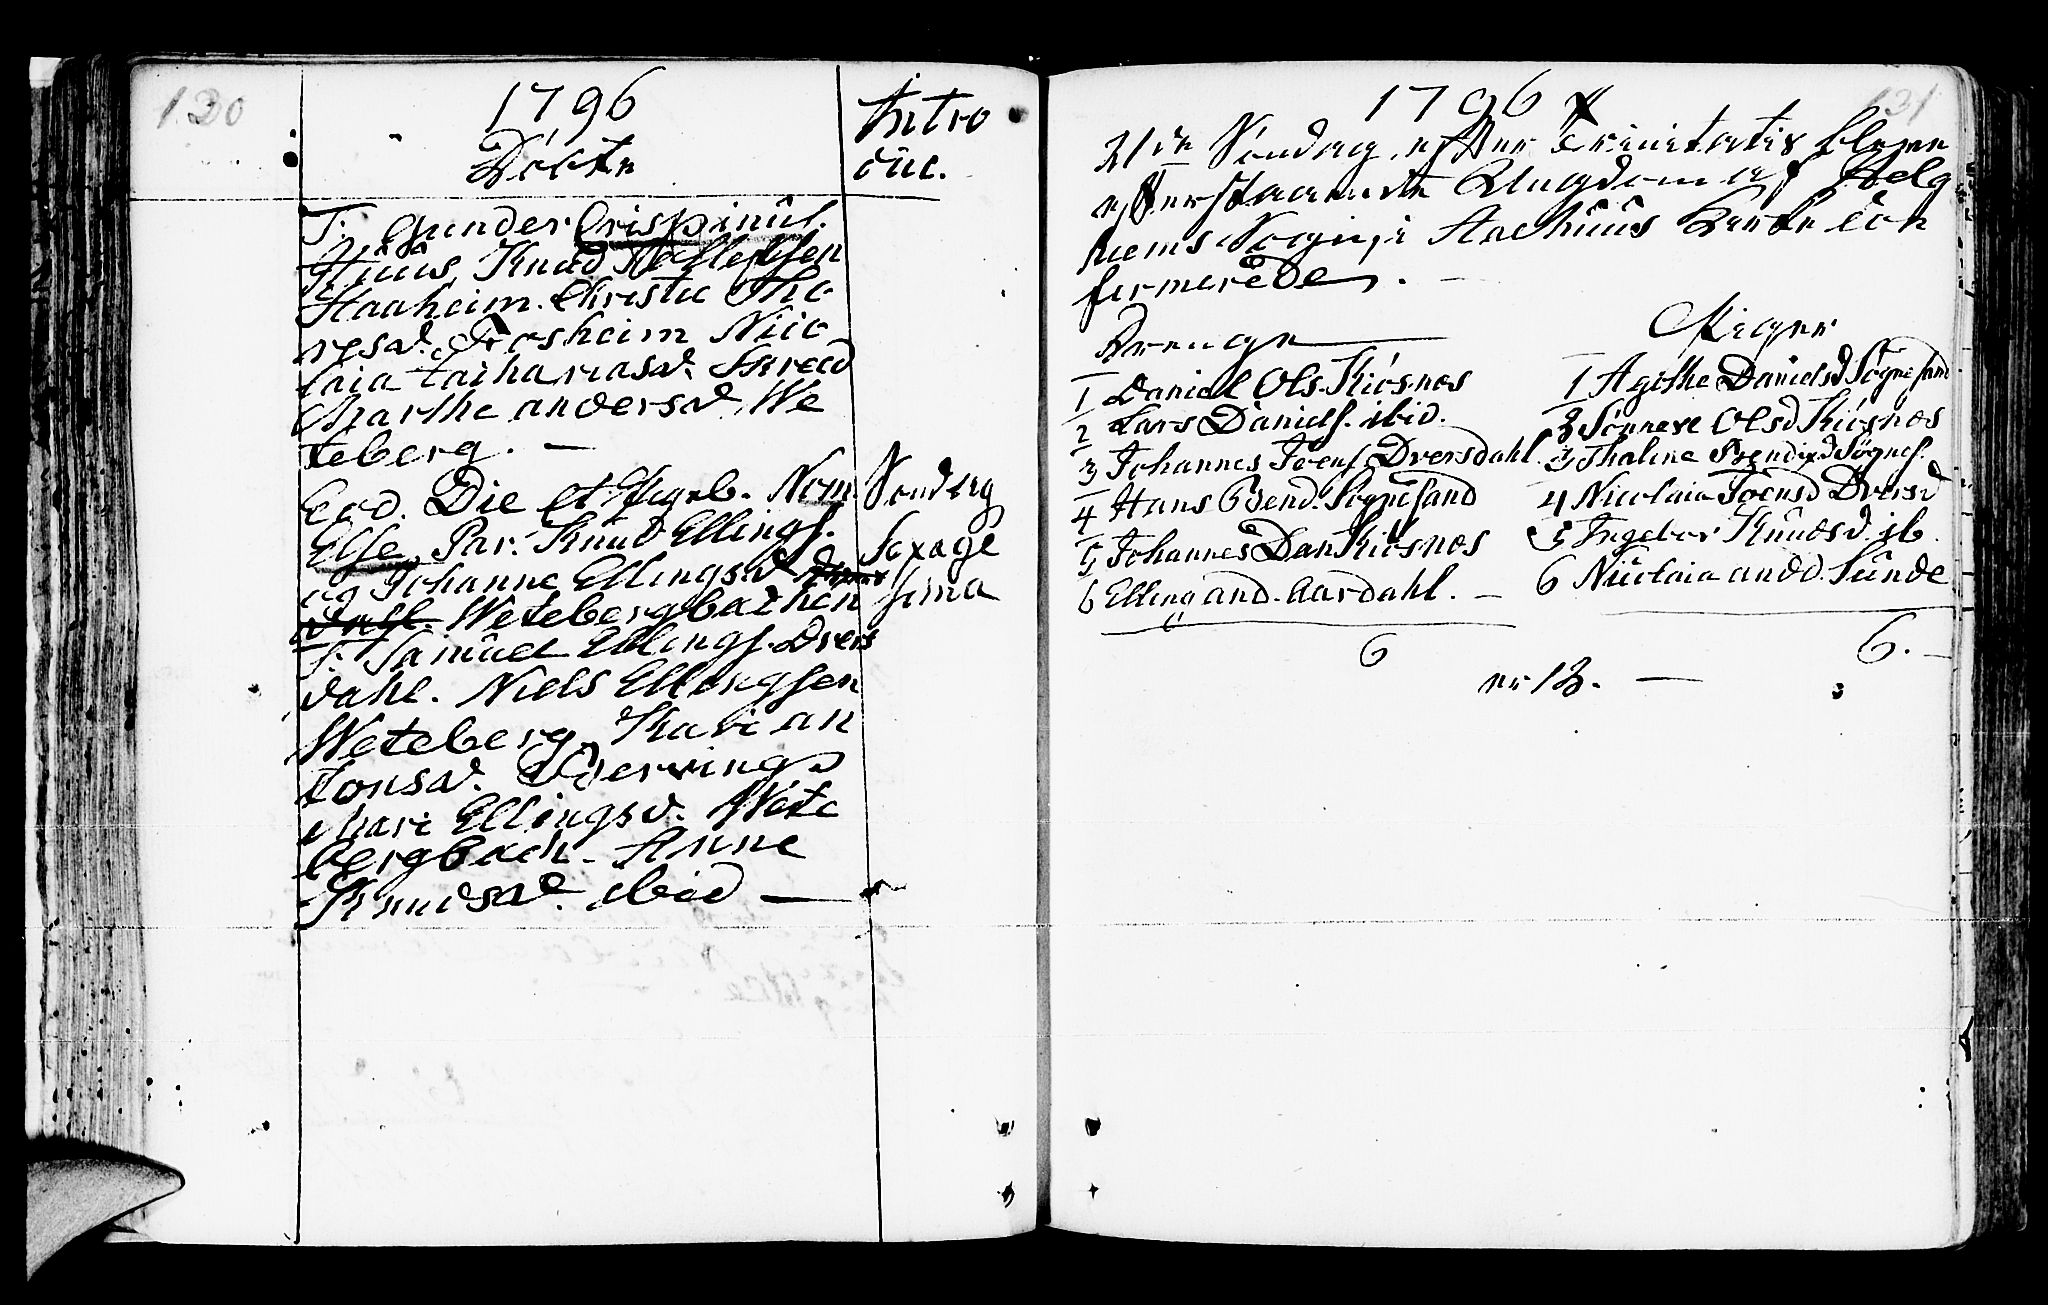 130
1796
Döbte
Intro
duc.
T: Gunder Crispinúl.
Húús, Knud
Haaheim. Christie Tho
resd. Trosheim Nico
laia Zachariasd. Skreed
Marthe andersd. We
teberg. —
Eod. Die et Ejusd. Nom.
Else. Par. Knud Ellings.
og Johanne Ellingsd.
dahl. Weteberg bachen
T: Samuel Ellings. Dvers
dahl. Niels Ellingsen
Weteberg. Kari an
tonsd.
Mari Ellingsd. Wete
bergbach. Anne
Knudsd. ibid —
Söndag
Sexage
sima
131
1796
21de Söndag efter Trinitatis bleve
efterstaaende Ungdom af Helg
hems Sogn, i Aaehúús Kirke con
firmerede. —
Drenge
1 Daniel Ols. Kiósnos
2 Lars Daniels. ibid.
3 Johannes Joens. Dversdahl.
4 Hans Bend. Sognesand
5 Johannes Dan. Kiosnos
6 Elling and. Aardahl. —
6
Piger
1 Agethe Danielsd Sögnesand
2 Sönneve Olsd Kiósnos
3 Thaline Bendixd Sögnes.
4 Nicolaia Joensd Dversd
5 Ingebor Knudsd. ib.
6 Nicolaia andd. Sunde
6. —
er 12. —